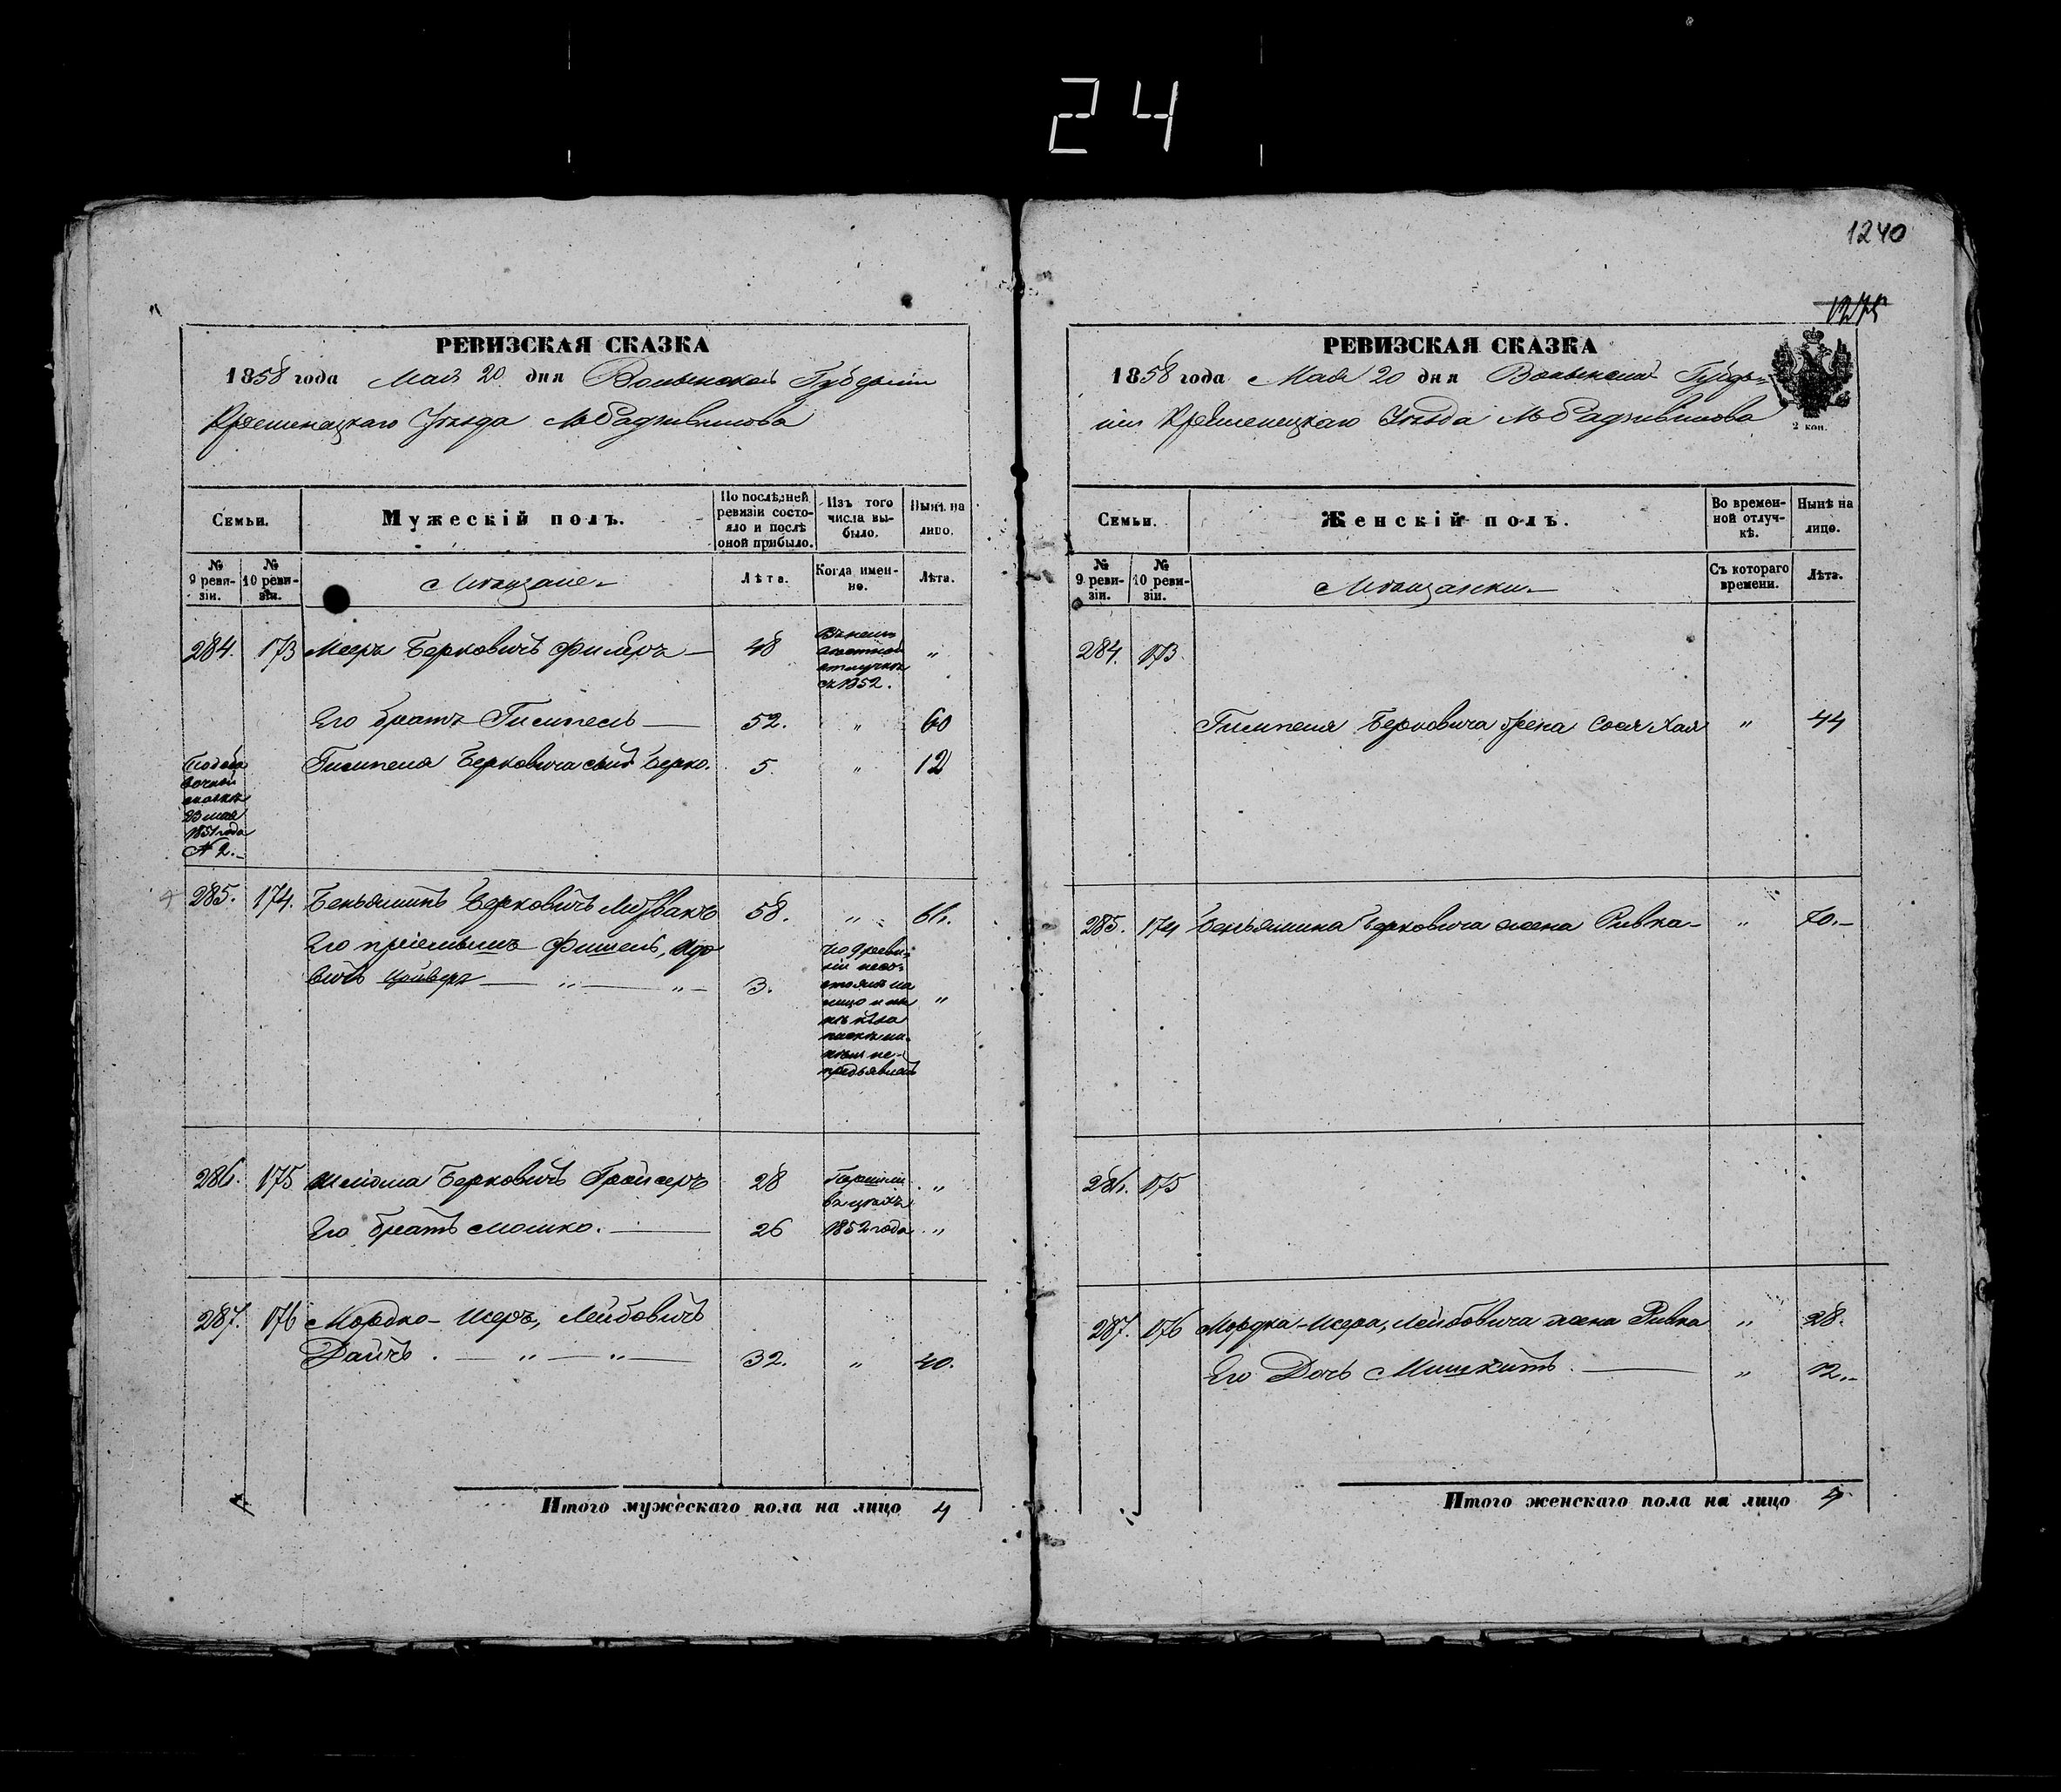 24
1240
РЕВИЗСКАЯ СКАЗКА
1858 года Мая 20 дня Волынской Губерніи
Кременецкаго Уѣзда М. Радзивилова
Семьи.
Мужескій полъ.
По послѣдней ревизіи состояло и послѣ оной прибыло.
Изъ того числа выбыло.
Нынѣ на лицо.
№ 9 ревизіи.
№ 10 ревизіи.
Мѣщане
Лѣта.
Когда именно.
Лѣта.
284. 173 Мееръ Берковичъ Фишеръ 48 отлучкѣ съ 1852. "
Его братъ Гимпель 52. " 60
Гимпеля Берковича сынъ Берко. 5. " 12
сказкѣ
23 мая
1851 года
№ 2.
285. 174. Беньяминъ Берковичъ 58. " 61.
Его пріемышъ Фишель,
вичъ " " 3. "
286. 175 Шлiома Берковичъ Гройсеръ 28 "
Его братъ Мошко. 26 1852 года "
287. 176 Мордко-Исеръ, Лейбовичъ
Дайчъ. " " 32. " 40.
Итого мужескаго пола на лицо 4
РЕВИЗСКАЯ СКАЗКА
1858 года Мая 20 дня Волынской Губерніи
Кременецкаго Уѣзда М. Радзивилова
2 коп.
Семьи.
Женскій полъ.
Во временной отлучкѣ.
Нынѣ на лицо.
№ 9 ревизіи.
№ 10 ревизіи.
Мѣщанки
Съ котораго времени.
Лѣта.
284. 173.
Гимпеля Берковича жена Сося Хая " 44
285. 174 Беньямина Берковича жена Ривка " 70.
286. 175
287. 176 Мордка-Исера, Лейбовича жена Ривка " 38.
Его Дочь " 12.
Итого женскаго пола на лицо 4